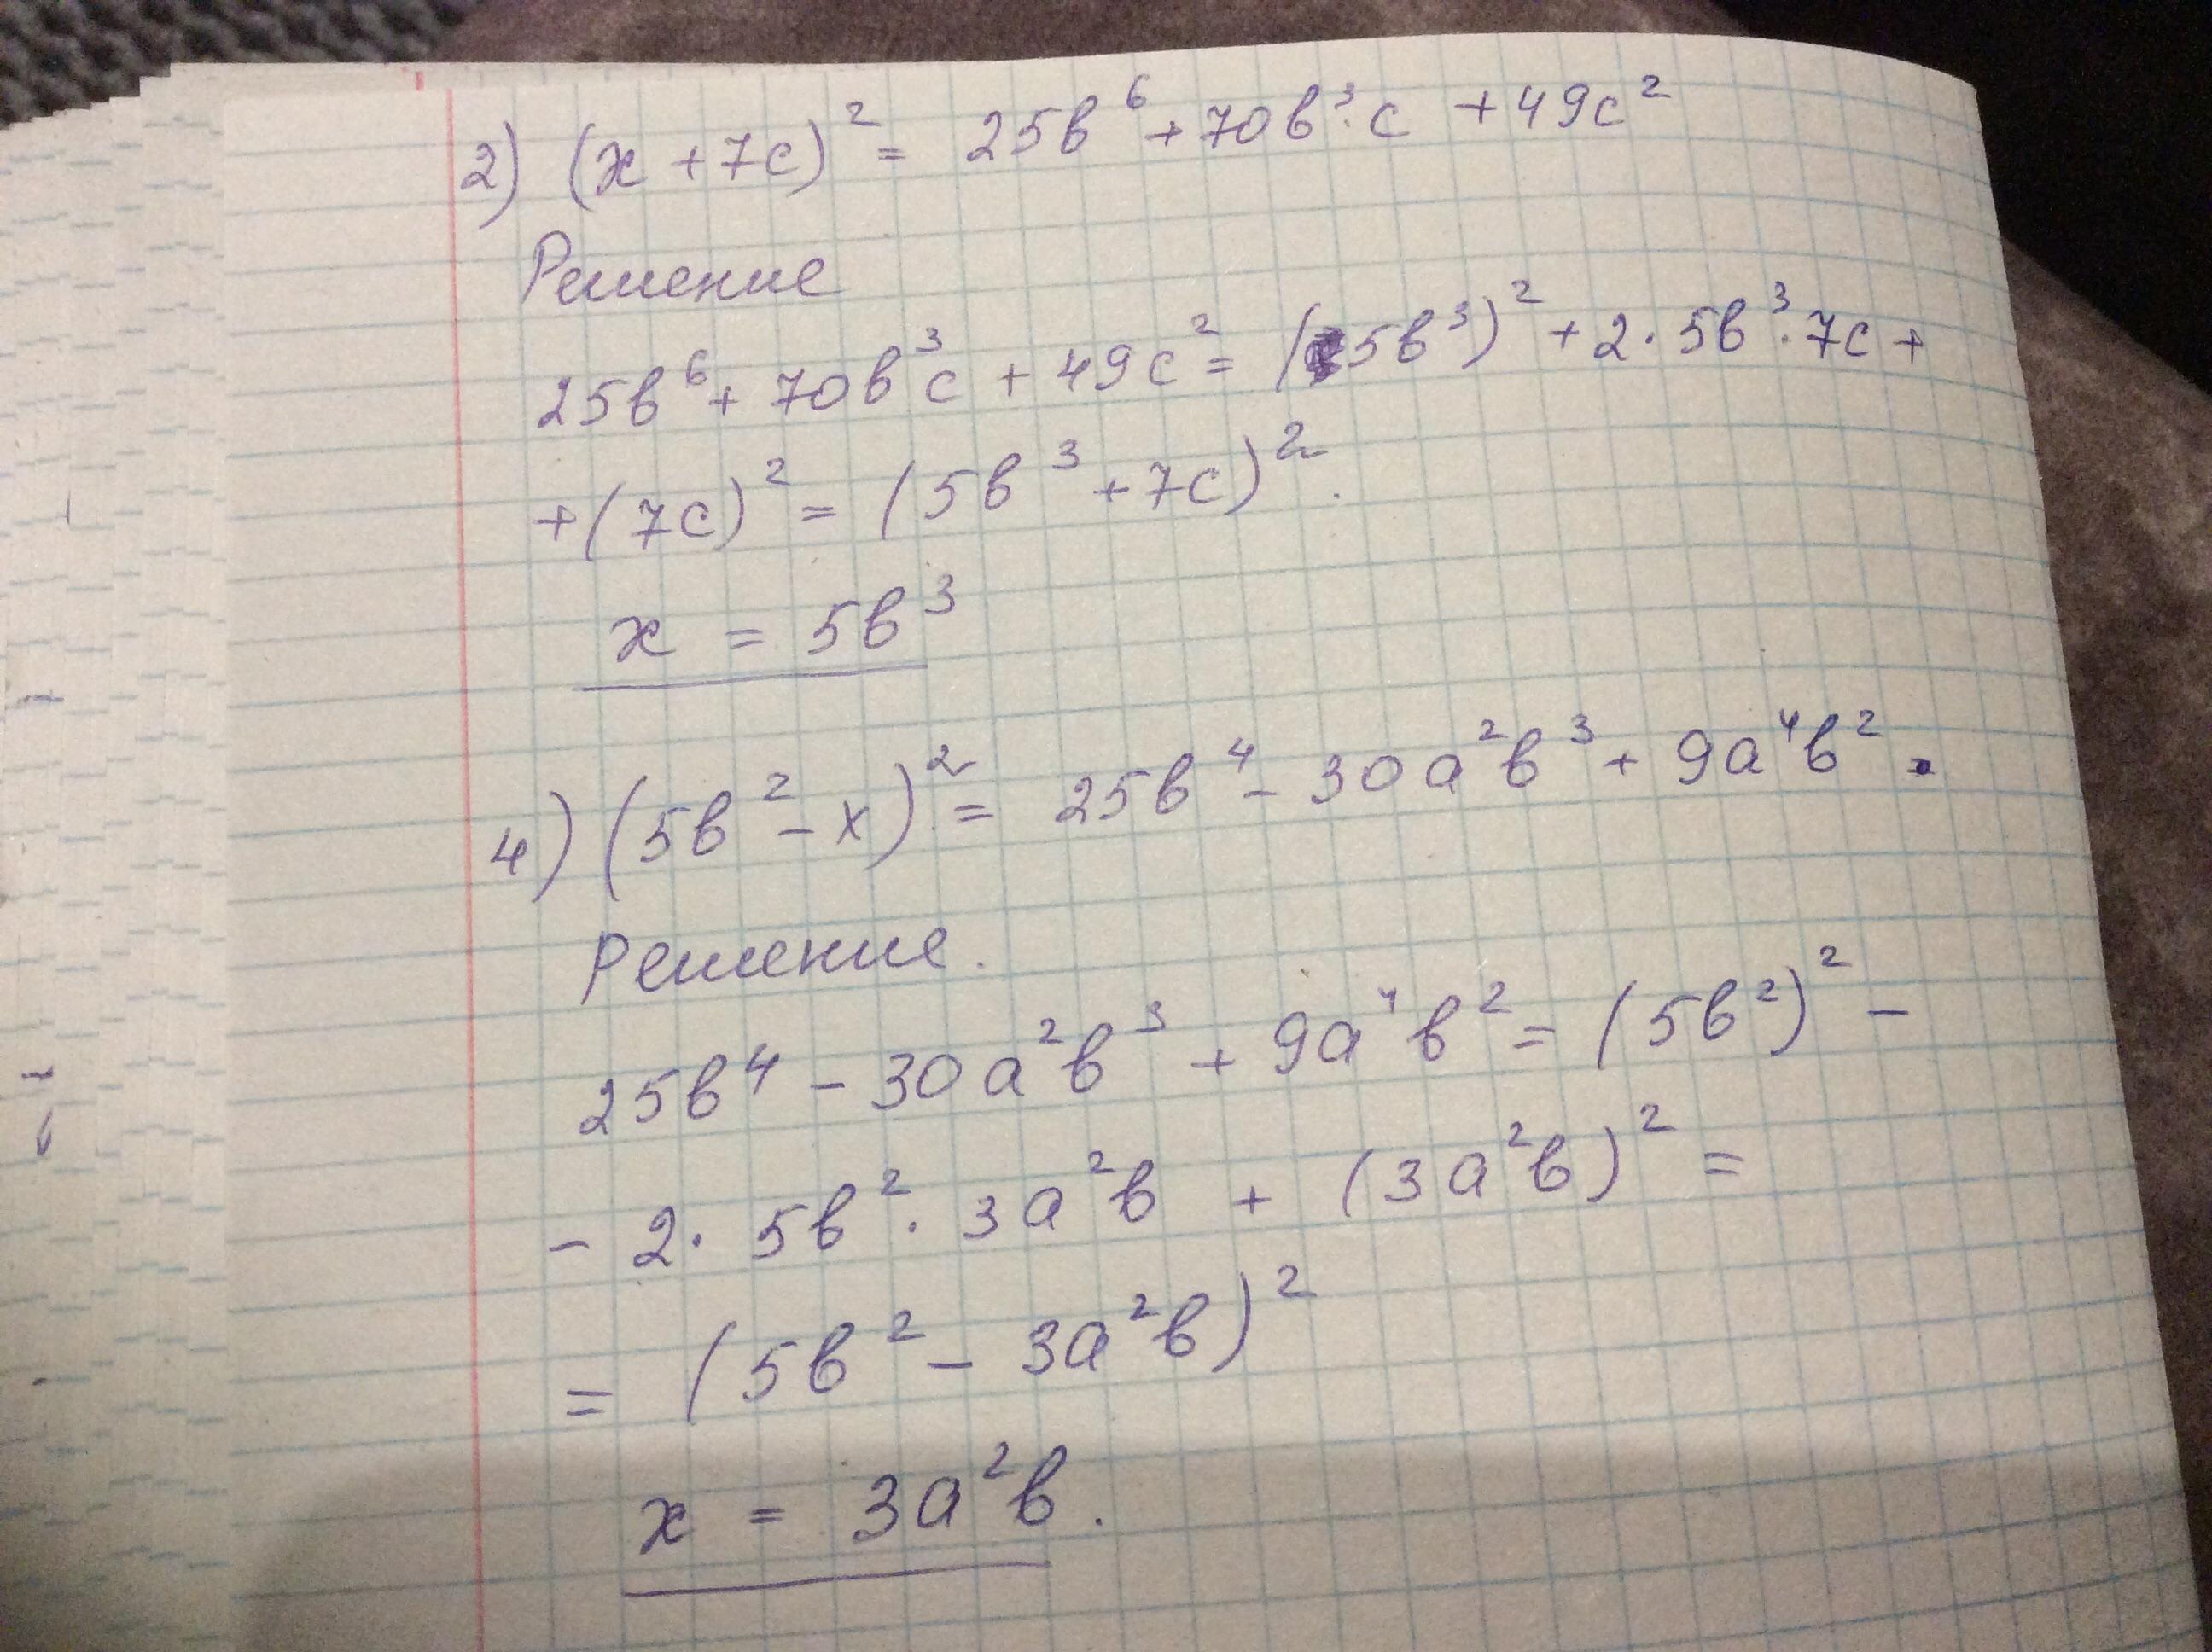 2) (x + 7c)² = 25b⁶ + 70b³·c + 49c²
Решение
25b⁶ + 70b³c + 49c² = (5b³)² + 2·5b³·7c +
+ (7c)² = (5b³ + 7c)².
x = 5b³
4) (5b² - x)² = 25b⁴ - 30a²b³ + 9a⁴b².
Решение.
25b⁴ - 30a²b³ + 9a⁴b² = (5b²)² -
- 2·5b²·3a²b + (3a²b)² =
= (5b² - 3a²b)²
x = 3a²b.